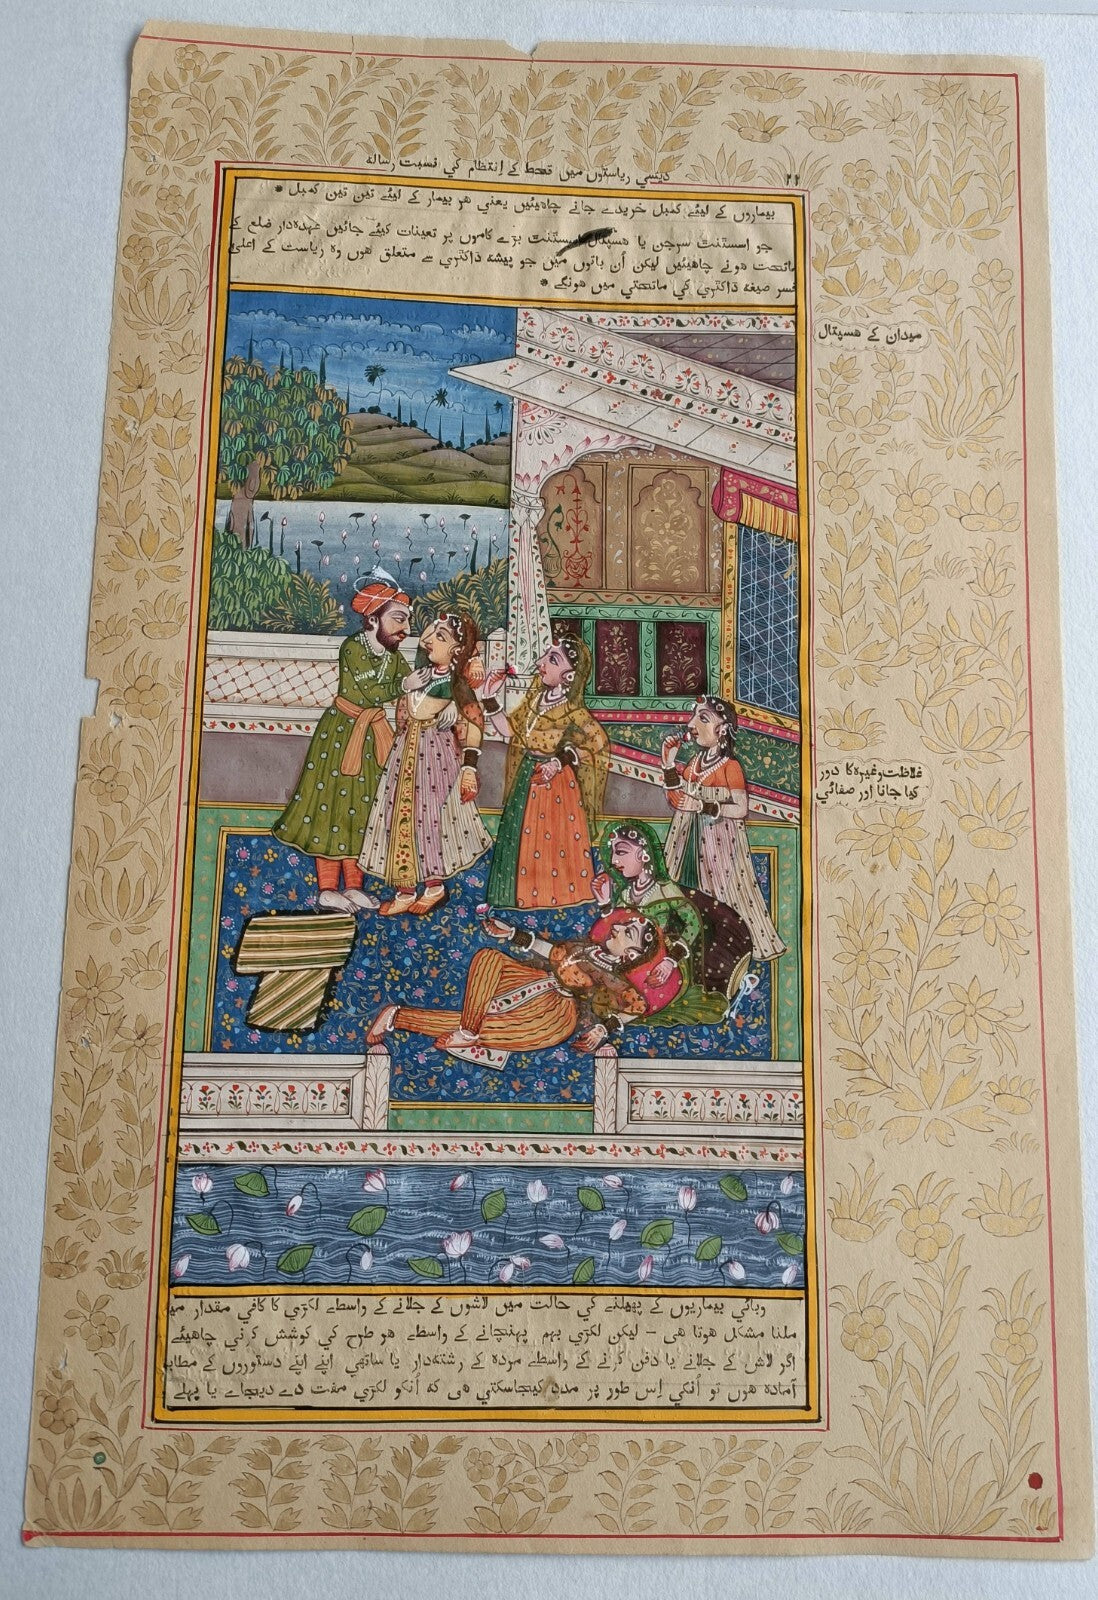 ۲۲
دیسي ریاستوں میں قحط کے اِنتظام کي نسبت رساله
بیماروں کے لیئے کمبل خریدے جانے چاهیئیں یعنی هر بیمار کے لیئے تین تین کمبل *
جو اسسٹنٹ سرجن یا هسپتال اسسٹنٹ بڑے کاموں پر تعینات کیئے جائیں عهده‌دار ضلع کے
ماتحت هونے چاهیئیں لیکن اُن باتوں میں جو پیشه ڈاکٹری سے متعلق هوں وه ریاست کے اعلیٰ
فسر صیغه ڈاکٹری کي ماتحتي میں هونگے *
میدان کے هسپتال
غلاظت وغیره کا دور
کیا جانا اور صفائي
وبائي بیماریوں کے پھیلنے کي حالت میں لاشوں کے جلانے کے واسطے لکڑي کا کافي مقدار میں
ملنا مشکل هوتا هی — لیکن لکڑي بهم پهنچانے کے واسطے هر طرح کي کوشش کرني چاهیئے
اگر لاش کے جلانے یا دفن کرنے کے واسطے مرده کے رشته‌دار یا ساتھي اپنے اپنے دستوروں کے مطابق
آماده هوں تو اُنکي اِس طور پر مدد کیجاسکتي هی که اُنکو لکڑي مفت دے دیجاے یا پهلے